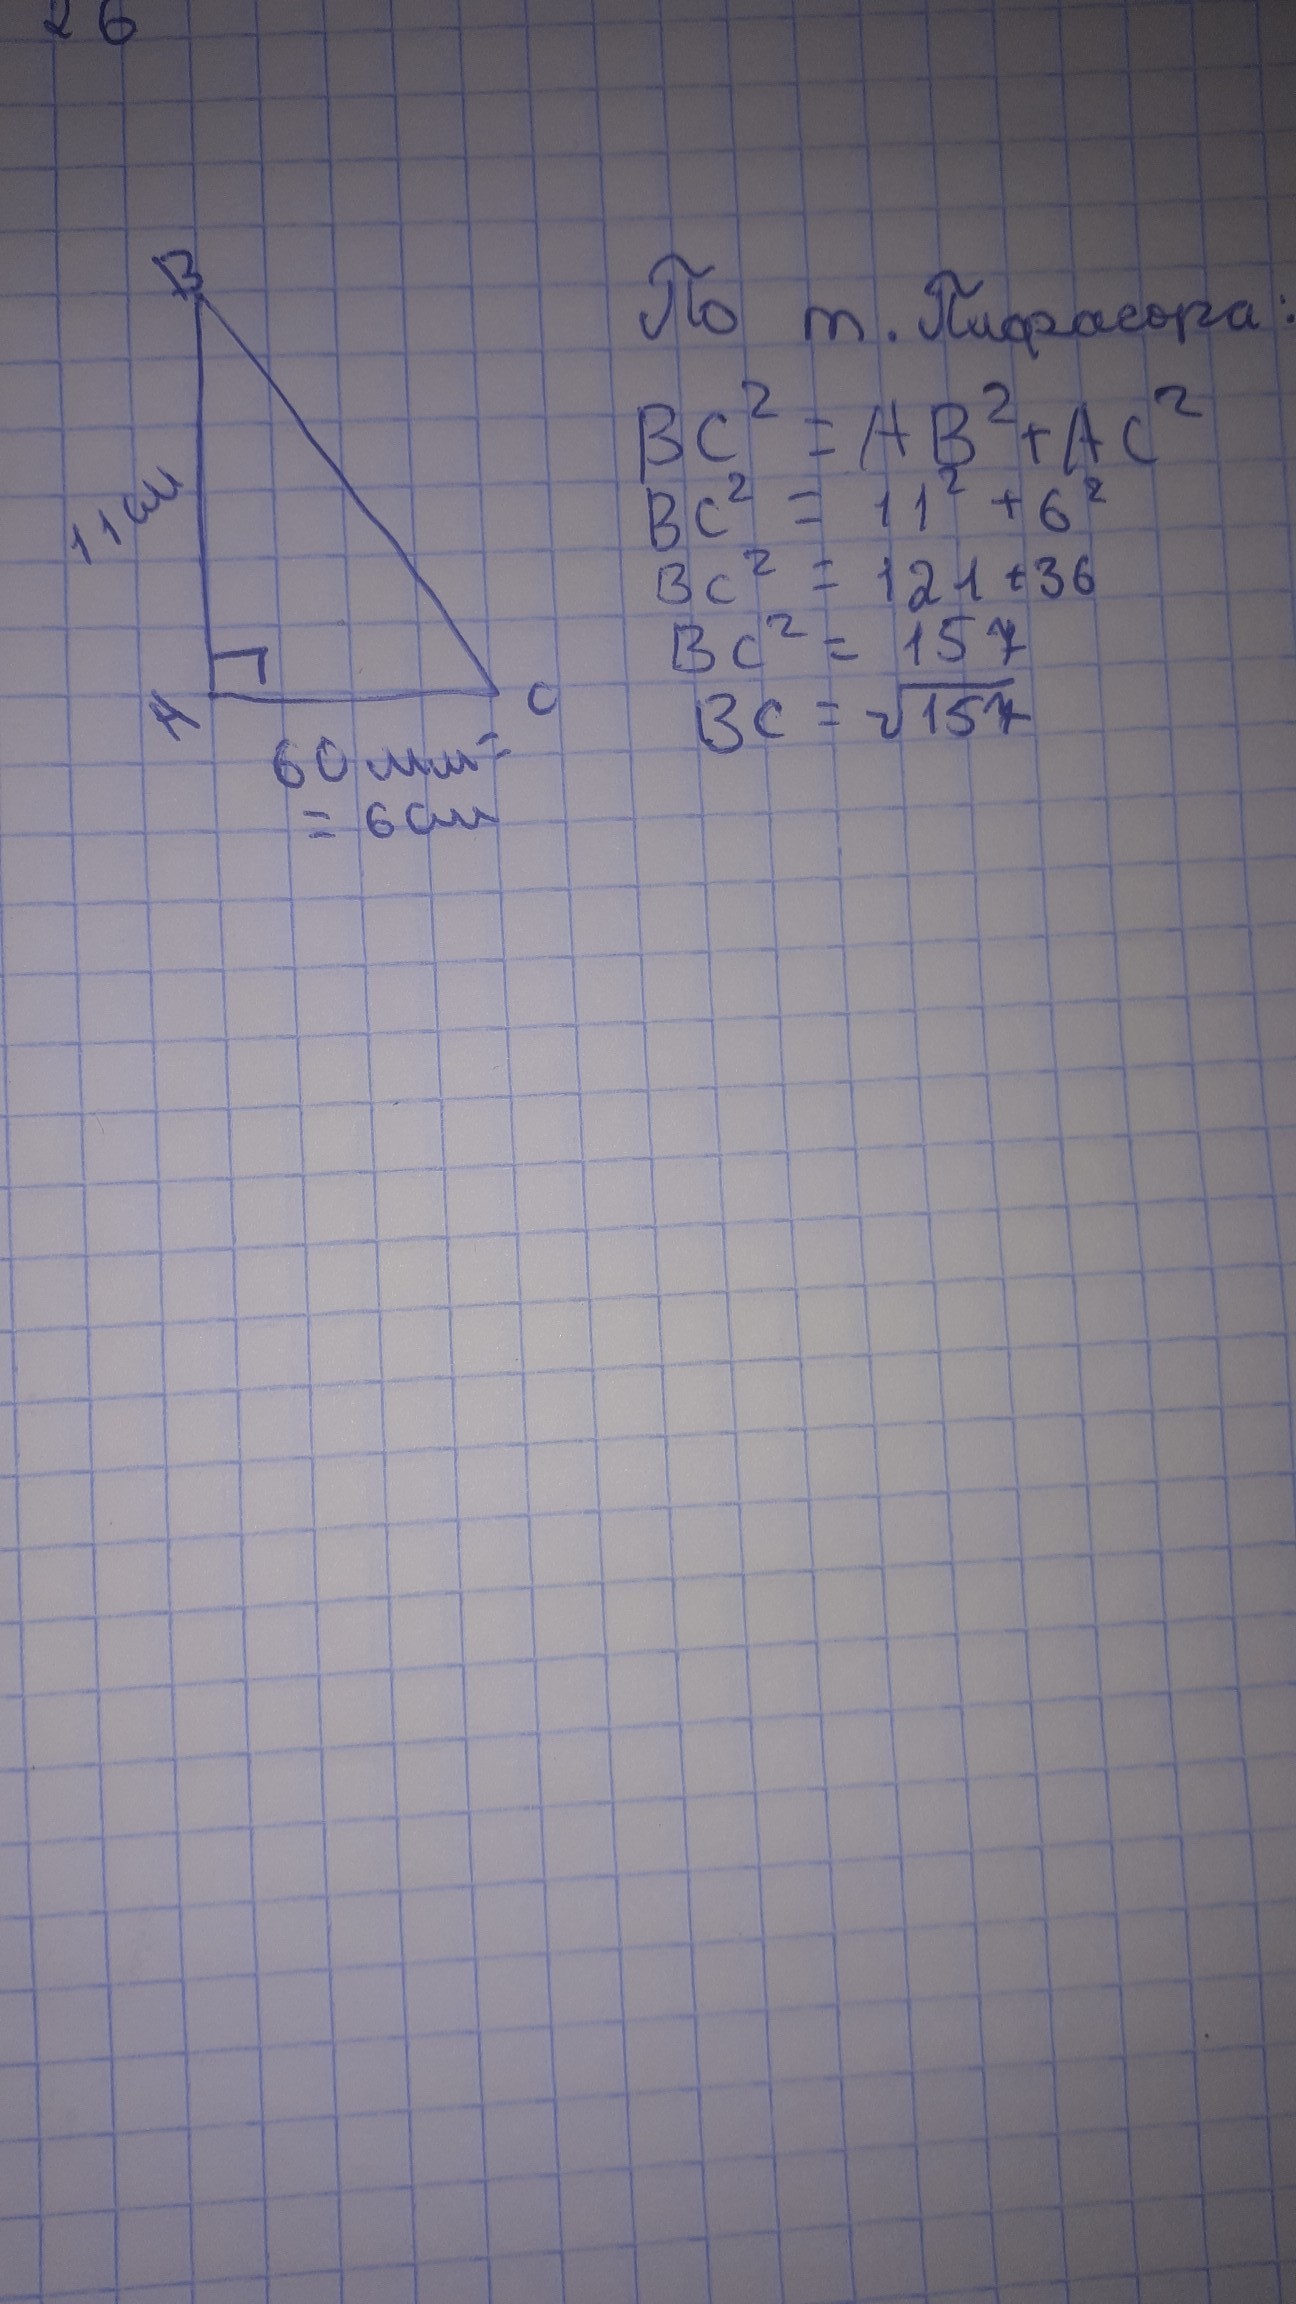 26
В
11 см
А
С
60 мм =
= 6 см
По т. Пифагора:
BC² = AB² + AC²
BC² = 11² + 6²
BC² = 121 + 36
BC² = 157
BC = √157